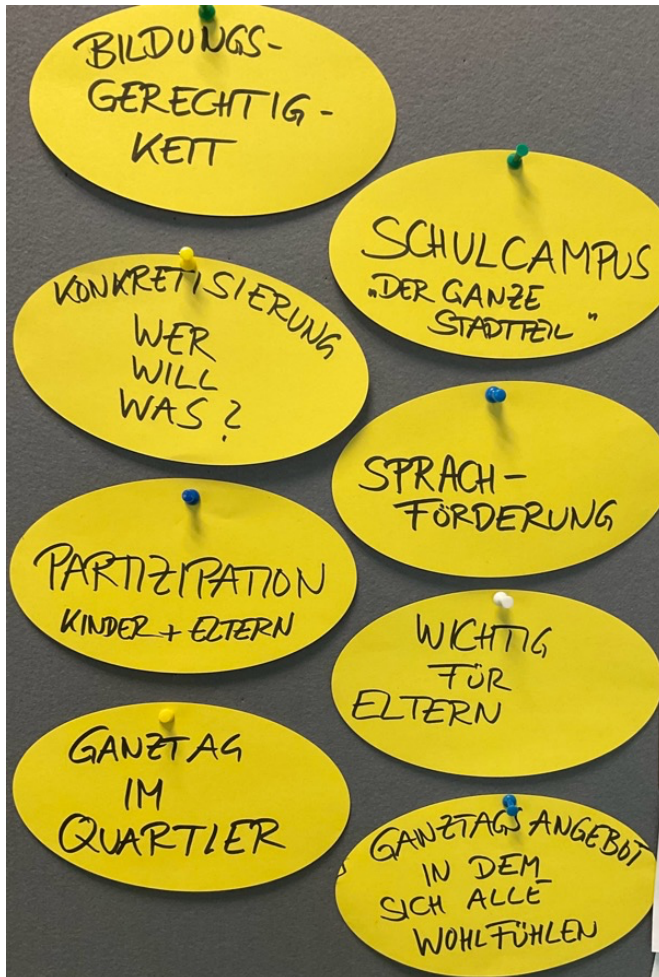 BILDUNGS-
GERECHTIG-
KEIT
SCHULCAMPUS
„DER GANZE
STADTTEIL"
KONKRETISIERUNG
WER
WILL
WAS?
SPRACH-
FÖRDERUNG
PARTIZIPATION
KINDER + ELTERN
WICHTIG
FÜR
ELTERN
GANZTAG
IM
QUARTIER
GANZTAGSANGEBOT
IN DEM
SICH ALLE
WOHLFÜHLEN